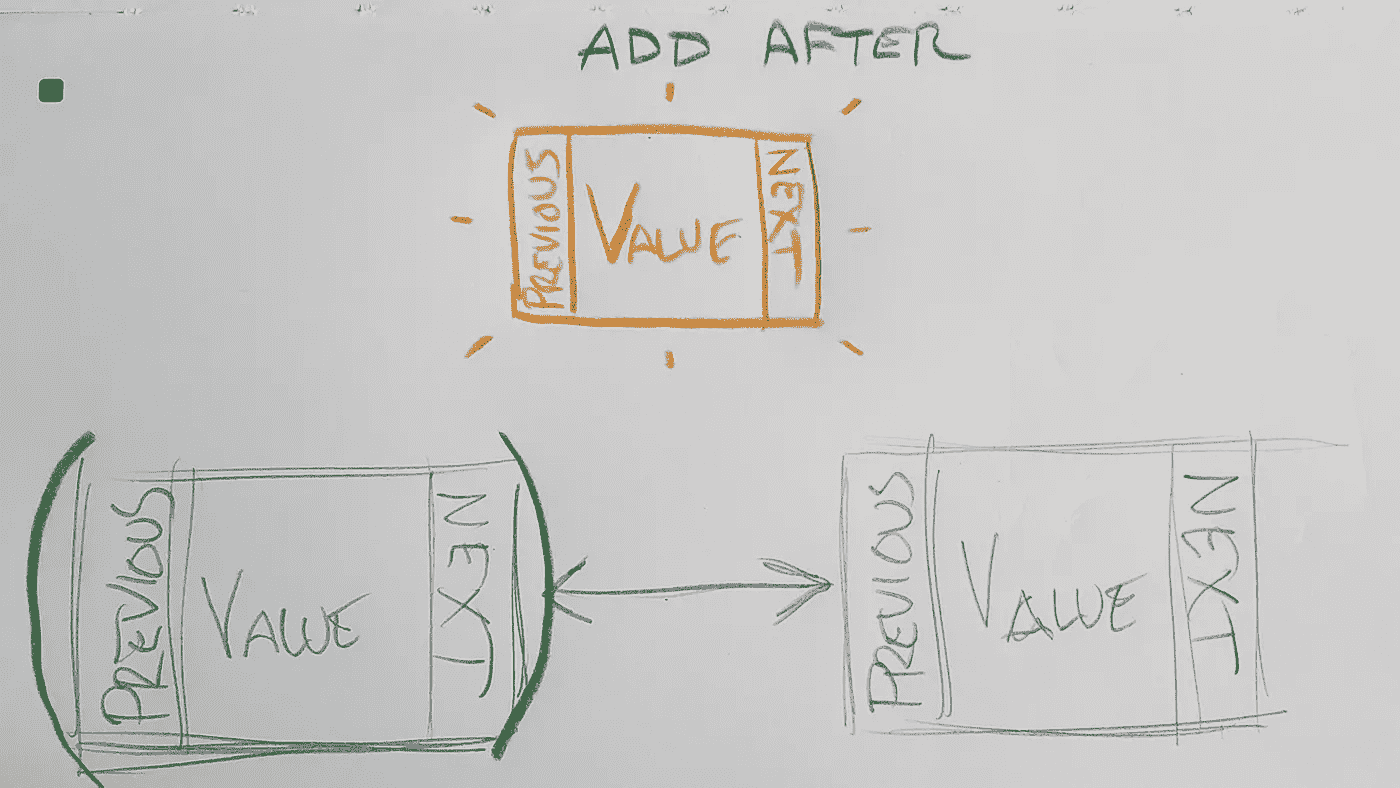 ADD AFTER
PREVIOUS VALUE NEXT
PREVIOUS VALUE NEXT
PREVIOUS VALUE NEXT